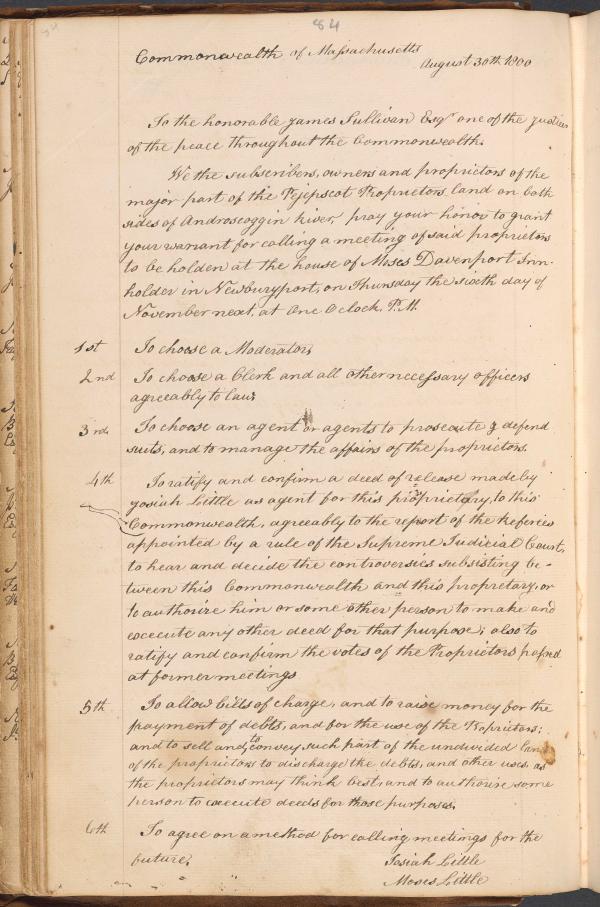 84
Commonwealth of Massachusetts
August 30th 1800
To the honorable James Sullivan Esqr one of the justices
of the peace throughout the Commonwealth.
We the subscribers, owners and proprietors of the
major part of the Pejepscot Proprietors land on both
sides of Androscoggin River, pray your honor to grant
your warrant for calling a meeting of said proprietors
to be holden at the house of Moses Davenport Inn-
holder in Newburyport, on Thursday the sixth day of
November next, at One O Clock, P.M.
1st To choose a Moderator,
2nd To choose a Clerk and all other necessary officers
agreeably to law;
3rd To choose an agent or agents to prosecute & defend
suits, and to manage the affairs of the proprietors.
4th To ratify and confirm a deed of release made by
Josiah Little as agent for this proprietary, to this
Commonwealth, agreeably to the report of the Referies
appointed by a rule of the Supreme Judicial Court,
to hear and decide the controversies subsisting be-
tween this Commonwealth and this proprietary, or
to authorize him or some other person to make and
execute any other deed for that purpose; also to
ratify and confirm the votes of the Proprietors passed
at former meetings
5th To allow bills of charge, and to raise money for the
payment of debts, and for the use of the Proprietors;
and to sell and, to convey such part of the undivided land
of the proprietors to discharge the debts, and other uses, as
the proprietors may think best; and to authorize some
person to execute deeds for those purposes.
6th To agree on a method for calling meetings for the
future,
Josiah Little
Moses Little